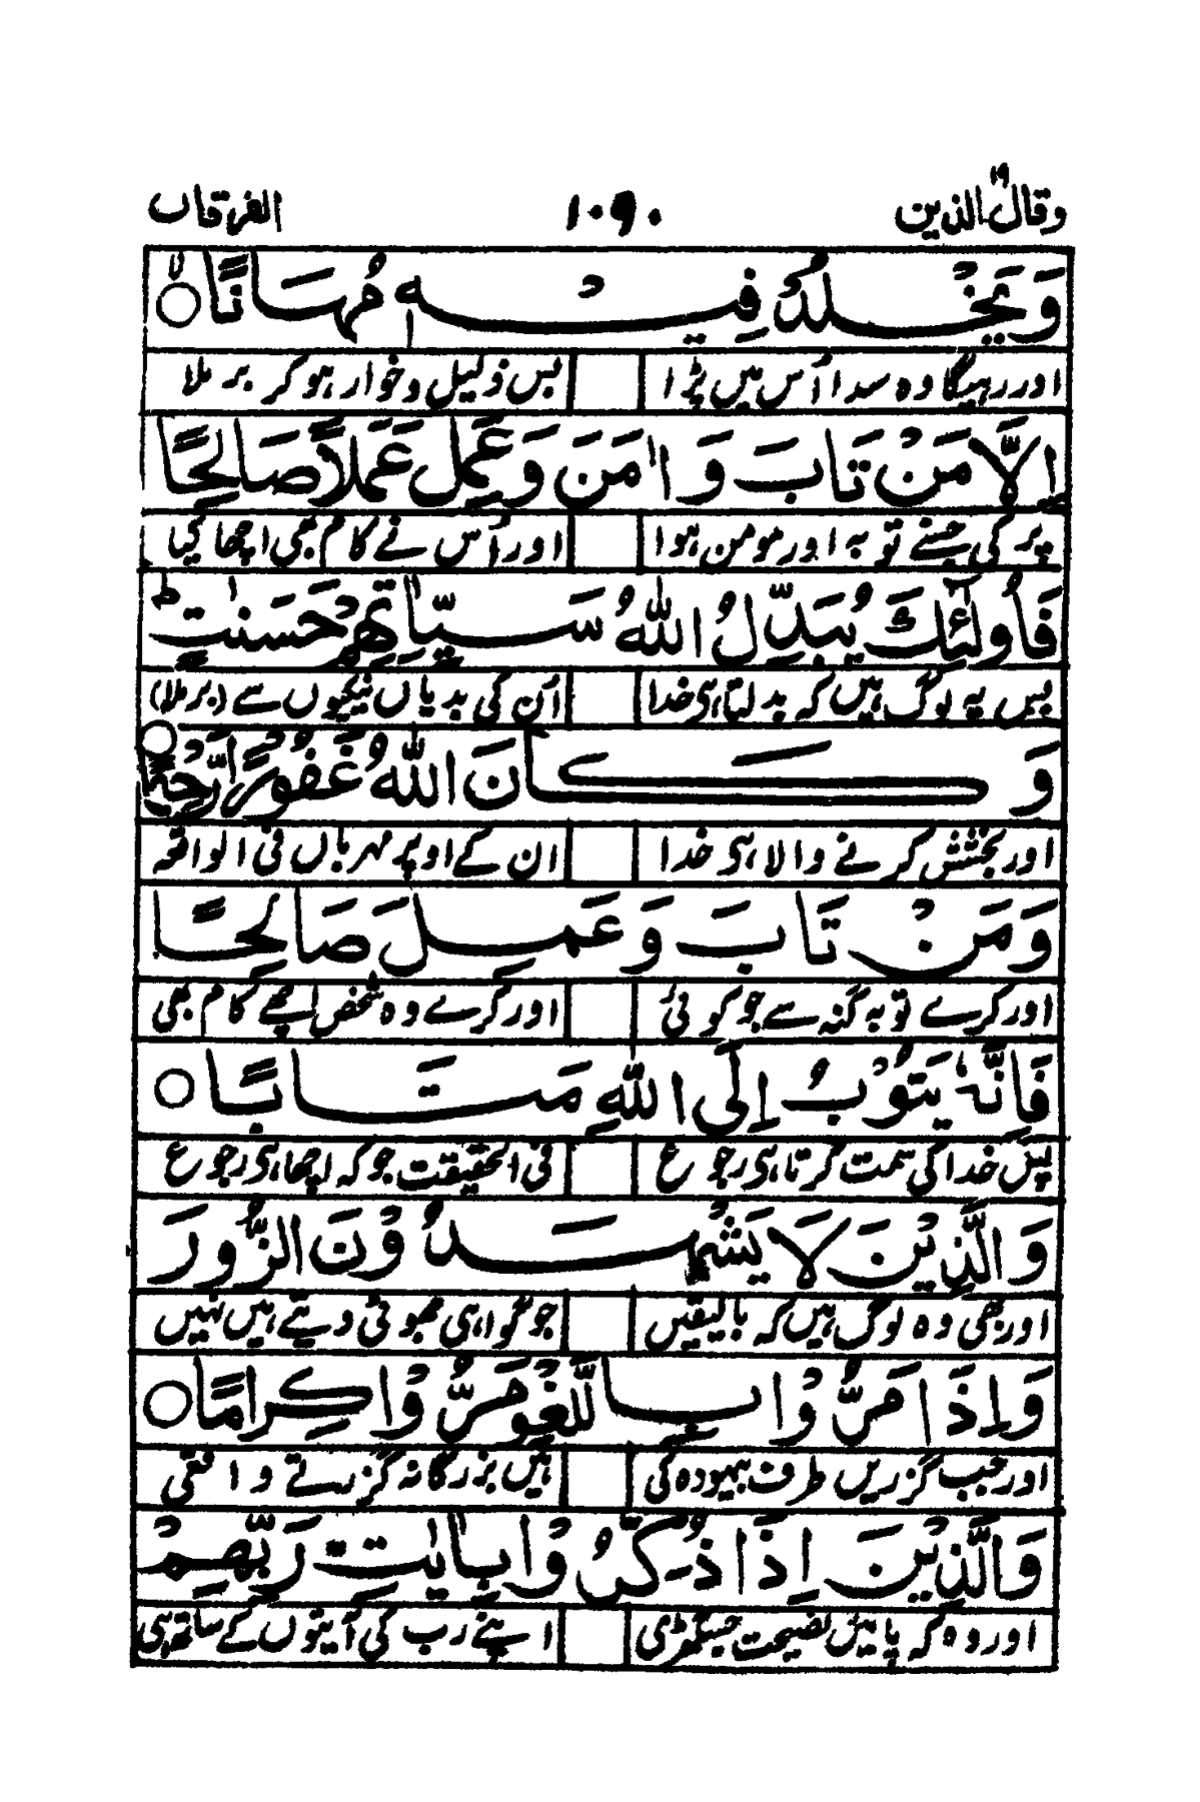 وقال الذین ۱۹ ۱۰۹۰ الفرقان
وَيَخْلُدْ فِيْهٖ مُهَانًا ۙ○
اور رہیگا وہ سدا اُس میں پڑا بس ذلیل و خوار ہو کر بر ملا
اِلَّا مَنْ تَابَ وَاٰمَنَ وَعَمِلَ عَمَلًا صَالِحًا
پر کی جسنے توبہ اور مومن ہوا اور اُس نے کام بھی اچھا کیا
فَاُولٰٓئِكَ يُبَدِّلُ اللّٰهُ سَيِّاٰتِهِمْ حَسَنٰتٍ ؕ
بس یہ لوگ ہیں کہ بدلتا ہی خدا اُن کی بدیاں نیکیوں سے (بر ملا)
وَكَانَ اللّٰهُ غَفُوْرًا رَّحِيْمًا○
اور بخشش کرنے والا ہی خدا ان کے اوپر مہرباں فی الواقعہ
وَمَنْ تَابَ وَعَمِلَ صَالِحًا
اور کرے توبہ گنہ سے جو کوئی اور کرے وہ شخص اچھے کام بھی
فَاِنَّهٗ يَتُوْبُ اِلَى اللّٰهِ مَتَابًا○
پس خدا کی سمت کرتا ہی رجوع فی الحقیقت جو کہ اچھا ہی رجوع
وَالَّذِيْنَ لَا يَشْهَدُوْنَ الزُّوْرَ
اور بھی وہ لوگ ہیں کہ بالیقیں جو گواہی جھوٹی دیتے ہیں نہیں
وَاِذَا مَرُّوْا بِاللَّغْوِ مَرُّوْا كِرَامًا○
اور جب گزریں طرف بیہودہ کی ہیں بزرگانہ گزرتے واقعی
وَالَّذِيْنَ اِذَا ذُكِّرُوْا بِاٰيٰتِ رَبِّهِمْ
اور وہ کہ پائیں نصیحت جس گھڑی اپنے رب کی آیتوں کے ساتھ ہی